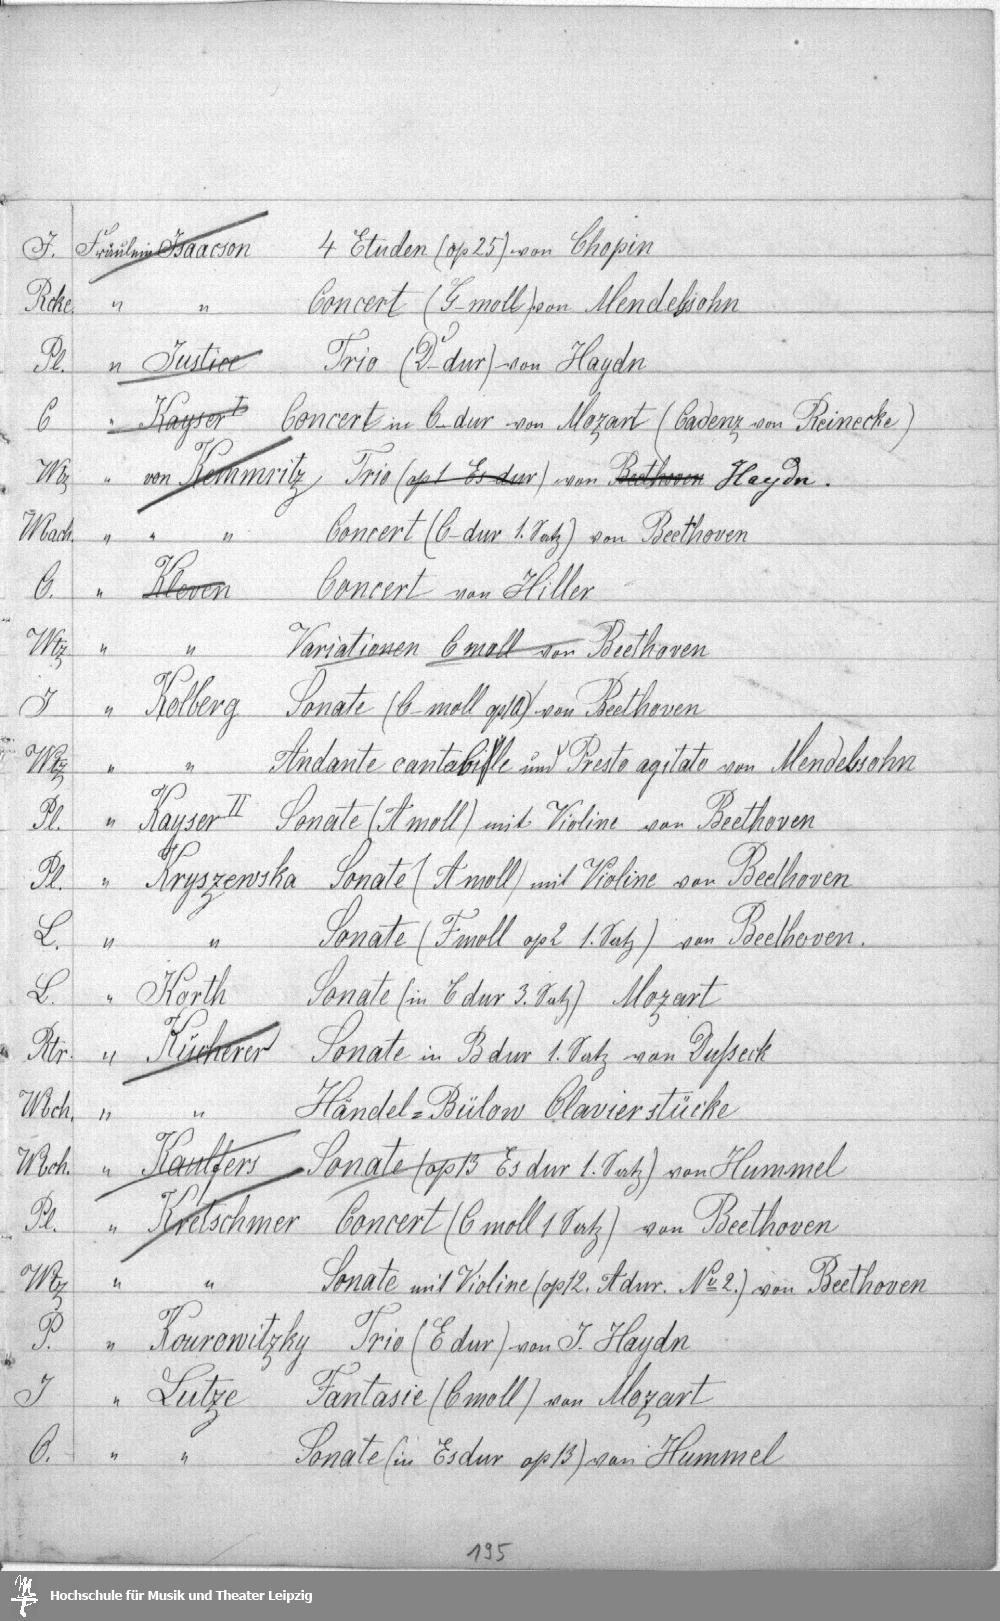 J. Fräulein Isaacson 4 Etuden (op 25) von Chopin
Rcke. " " Concert (G-moll) von Mendelssohn
Pl. " Justice Trio (D-dur) von Haydn
C " Kayser I Concert in C-dur von Mozart (Cadenz von Reinecke)
Wtz " von Kemmritz Trio (op 1 Es dur) von Beethoven Haydn.
Wbach. " " " Concert (C-dur 1. Satz) von Beethoven
C. " Kleven Concert von Hiller
Wtz " " Variationen C moll von Beethoven
J " Kolberg Sonate (C-moll op 10) von Beethoven
Wtz " " Andante cantabile und Presto agitato von Mendelssohn
Pl. " Kayser II Sonate (A moll) mit Violine von Beethoven
Pl. " Kryszewska Sonate (A moll) mit Violine von Beethoven
L. " " Sonate (F moll op 2 1. Satz) von Beethoven.
L. " Korth Sonate (in C dur 3. Satz) Mozart
Rtr. " Kücherer Sonate in B dur 1. Satz von Dußeck
Wbch. " " Händel=Bülow Clavierstücke
Wbch. " Kaulfers Sonate (op 13 Es dur 1. Satz) von Hummel
Pl. " Kretschmer Concert (C moll 1 Satz) von Beethoven
Wtz " " Sonate mit Violine (op 12. A dur. No 2.) von Beethoven
P. " Kourowitzky Trio (E dur) von J. Haydn
J " Lutze Fantasie (C moll) von Mozart
C. " " Sonate (in Es dur op 13) von Hummel
195
Hochschule für Musik und Theater Leipzig